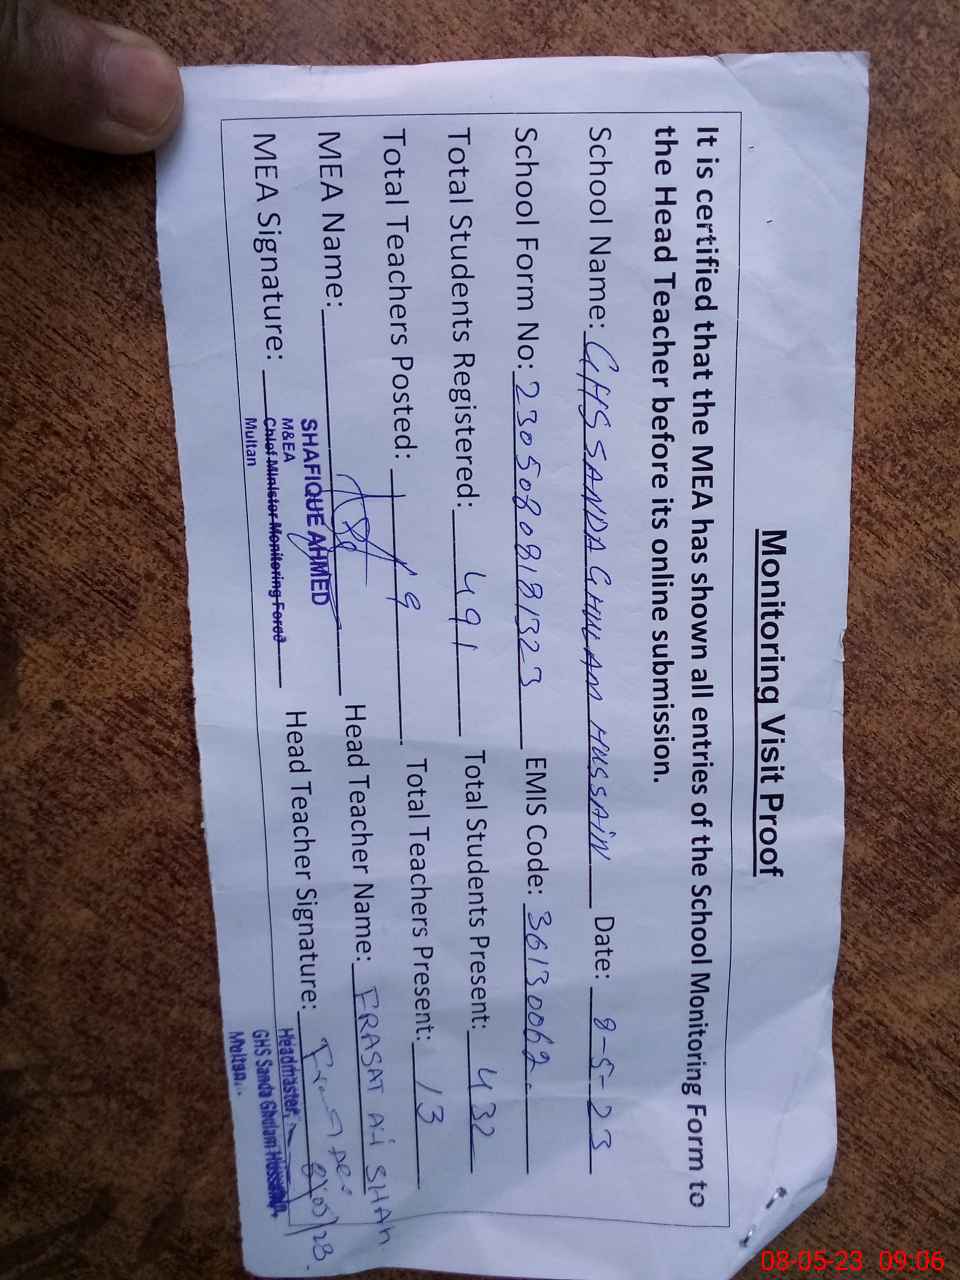 Monitoring Visit Proof
It is certified that the MEA has shown all entries of the School Monitoring Form to
the Head Teacher before its online submission.
School Name: GHS SANDA GHULAM HUSSAIN Date: 8-5-23
School Form No: 23050808181323 EMIS Code: 36130062
Total Students Registered: 491 Total Students Present: 432
Total Teachers Posted: 19 Total Teachers Present: 13
MEA Name: Head Teacher Name: FRASAT Ali SHAH
SHAFIQUE AHMED
MEA Signature: Head Teacher Signature:
M&EA
Chief Minister Monitoring Force
Multan
Headmaster,
GHS Sanda Ghulam Hussain,
Multan.
08/05/23
08-05-23 09:06